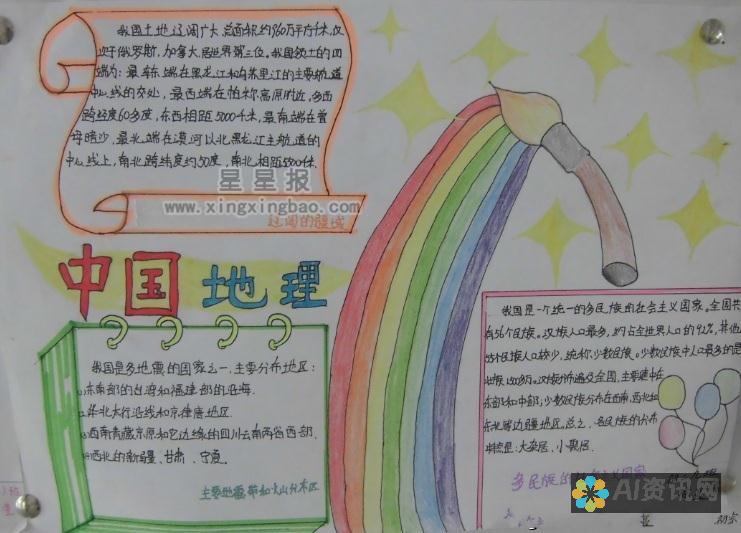 我国土地辽阔广大,总面积约960万平方千米,仅
次于俄罗斯、加拿大,居世界第三位。我国领土的四
端为:最东端在黑龙江和乌苏里江的主要航道
中心线的交处,最西端在帕米高原附近,东西
跨经度60多度,东西相距5000千米,最南端在曾
母暗沙,最北端在漠河以北黑龙江主航道的
中心线上,南北跨纬度约50度,南北相距5500千米.
星星报
www.xingxingbao.com
辽阔的疆域
中国地理
我国是多地震的国家之一,主要分布地区:
东南部的台湾和福建部的沿海.
华北太行沿线和京津唐地区.
西南青藏高原和它边缘的四川云南两省西部.
西北的新疆、甘肃、宁夏.
主要地震带和火山分布区
我国是一个统一的多民族的社会主义国家。全国共
有56个民族。汉族人口最多,约占全世界人口的92%,其他
55个民族人口较少,统称少数民族。少数民族中人口最多的是
壮族1500万。汉族所遍及全国,主要集中在
东部和中部,少数民族分布在西南、西北和
东北等边疆地区。总之,各民族的分布
特点是:大杂居、小聚居.
多民族的
AI资讯网